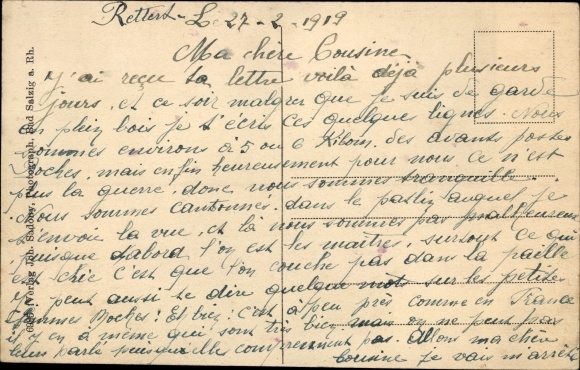 Rettert - L 27-2-1919
Ma chère Cousine
J'ai reçu ta lettre voilà déjà plusieurs
jours, et ce soir malgrer que je suis de garde
en plein bois je t'écris ces quelques lignes. Nous
sommes environs à 5 ou 6 Kilom. des avants postes
Boches, mais enfin heureusement pour nous, ce n'est
plus la guerre, donc nous sommes tranquille.
Nous sommes cantonnés dans le patlin auquel je
t'envoie la vue, et là nous sommes pas malheureux
puisque d'abord l'on est les maîtres, surtout ce qui
est chic c'est que l'on couche pas dans la paille
Je peut aussi te dire quelque mots sur les petites
femmes Boches: Et bien: c'est à peu près comme en France
il y en a même qui sont très bien mais on ne peut pas
leur parlé puisqu'elle comprennent pas. Allons ma chère
cousine je vais m'arrêté
Verlag Joh. Sadony, Photograph, Bad Salzig a. Rh.